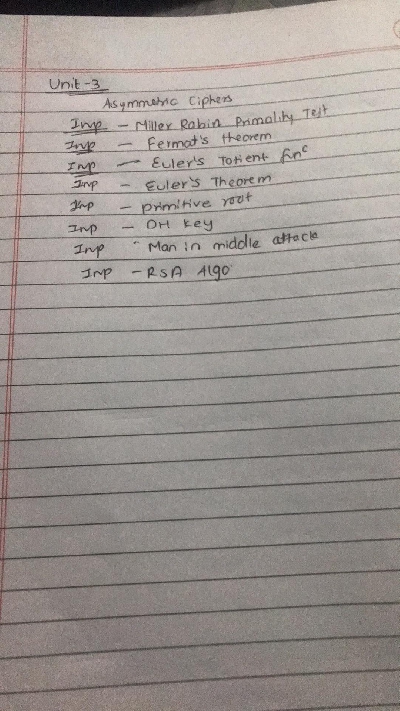 Unit-3
Asymmetric Ciphers
Imp - Miller Rabin Primality Test
Imp - Fermat's theorem
Imp - Euler's Totient func
Imp - Euler's Theorem
Imp - primitive root
Imp - DH key
Imp - Man in middle attack
Imp - RSA Algo